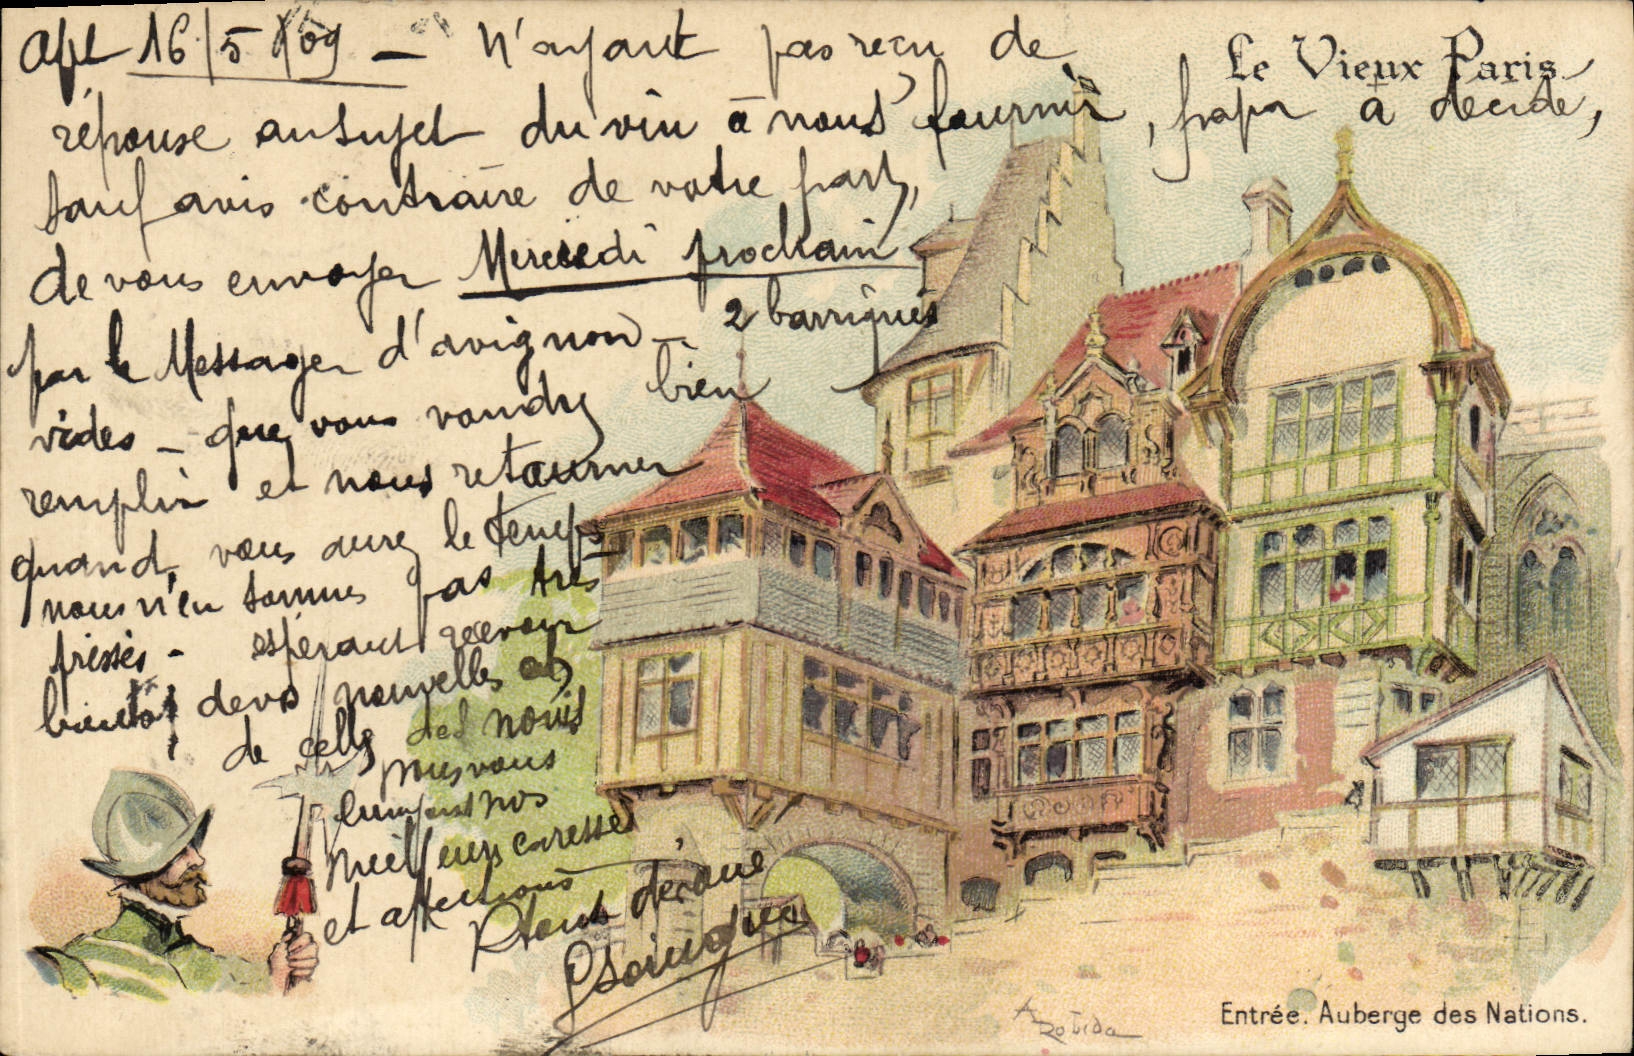 Le Vieux Paris
16/5/09 — N'ayant pas recu de
réponse au sujet du vin à nous fournir, papa a décidé,
sauf avis contraire de votre part,
de vous envoyer Mercredi prochain
par le Messager d'avignon — 2 barriques
vides — que vous voudrez bien
remplir et nous retourner
quand vous aurez le temps
nous n'en sommes pas très
pressés — espérant recevoir
bientôt de vos nouvelles et
de celles des
nous vous
envoyant nos
meilleurs caresses
et affections
A Robida
Entrée. Auberge des Nations.